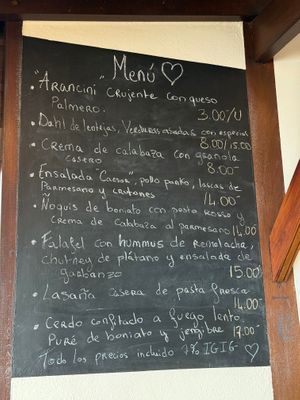 Menú
"Arancini" crujente con queso
Palmero. 3.00/U
• Dahl de lentejas, Verduras asadas con especias
8.00/15.00
• Crema de calabaza con granola
casero 8.00
• Ensalada "Caesar", pollo panko, lascas de
Parmesano y crutones 14.00
• Ñoquis de boniato con pesto rosso y
crema de calabaza al parmesano 14,00
• Falafel con hummus de remolacha,
chutney de plátano y ensalada de
garbanzo 15.00
• Lasaña casera de pasta fresca
14.00
• Cerdo confitado a fuego lento,
Puré de boniato y jengibre 17.00
Todo los precios incluido 7% IGIG